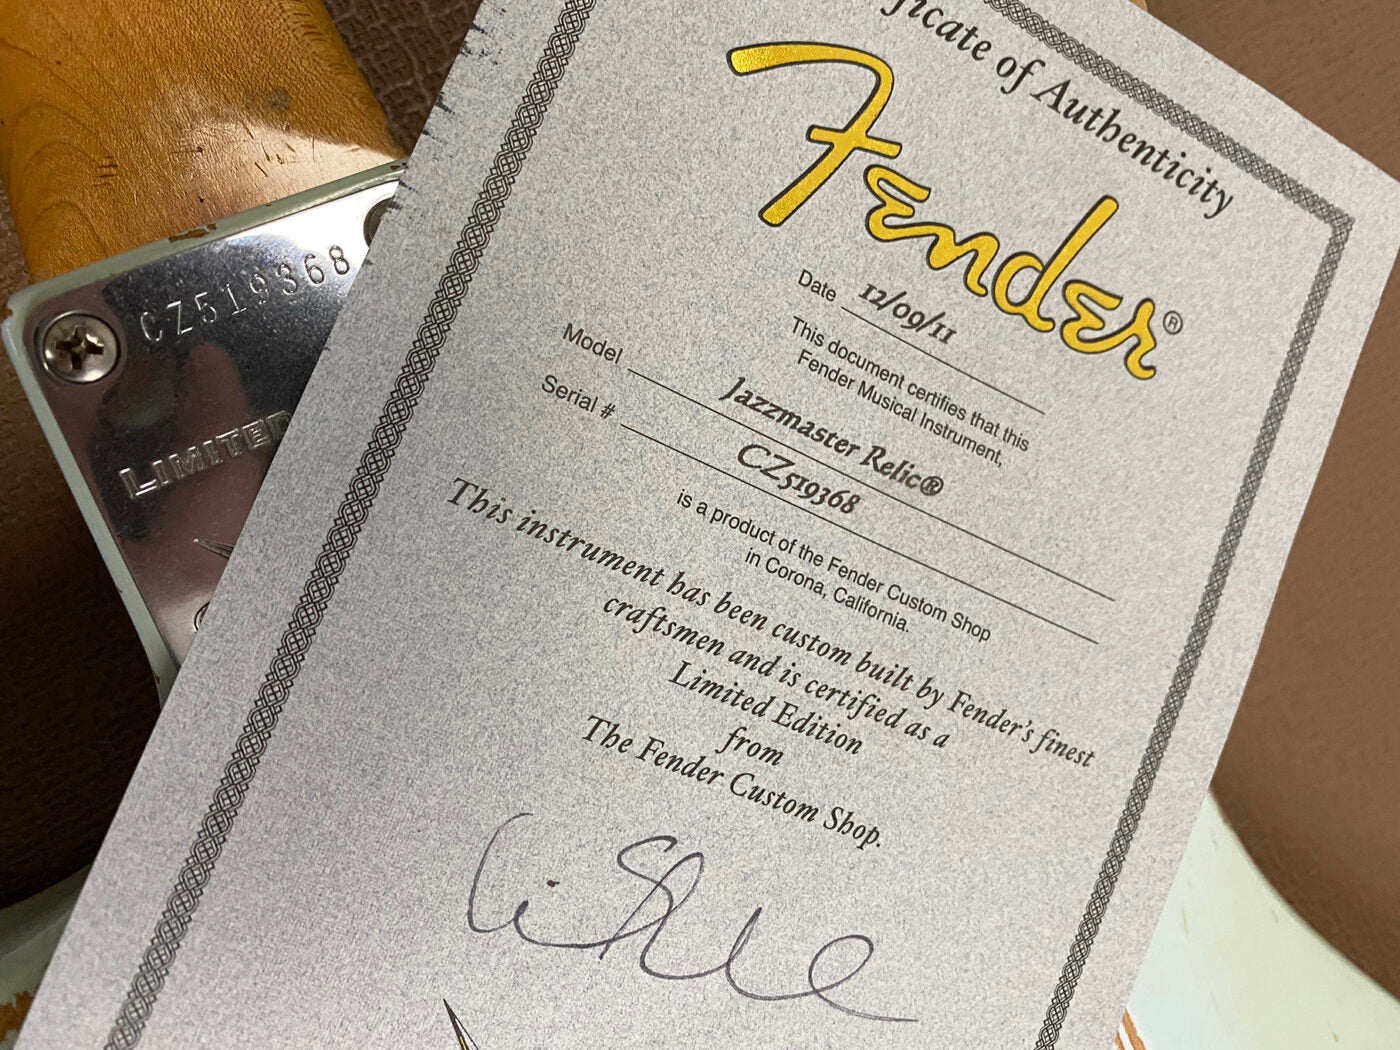 CZ519368
LIMITED
of Authenticity
Fender®
Date 12/09/11
This document certifies that this
Fender Musical Instrument,
Model Jazzmaster Relic®
Serial # CZ519368
is a product of the Fender Custom Shop
in Corona, California.
This instrument has been custom built by Fender's finest
craftsmen and is certified as a
Limited Edition
from
The Fender Custom Shop.